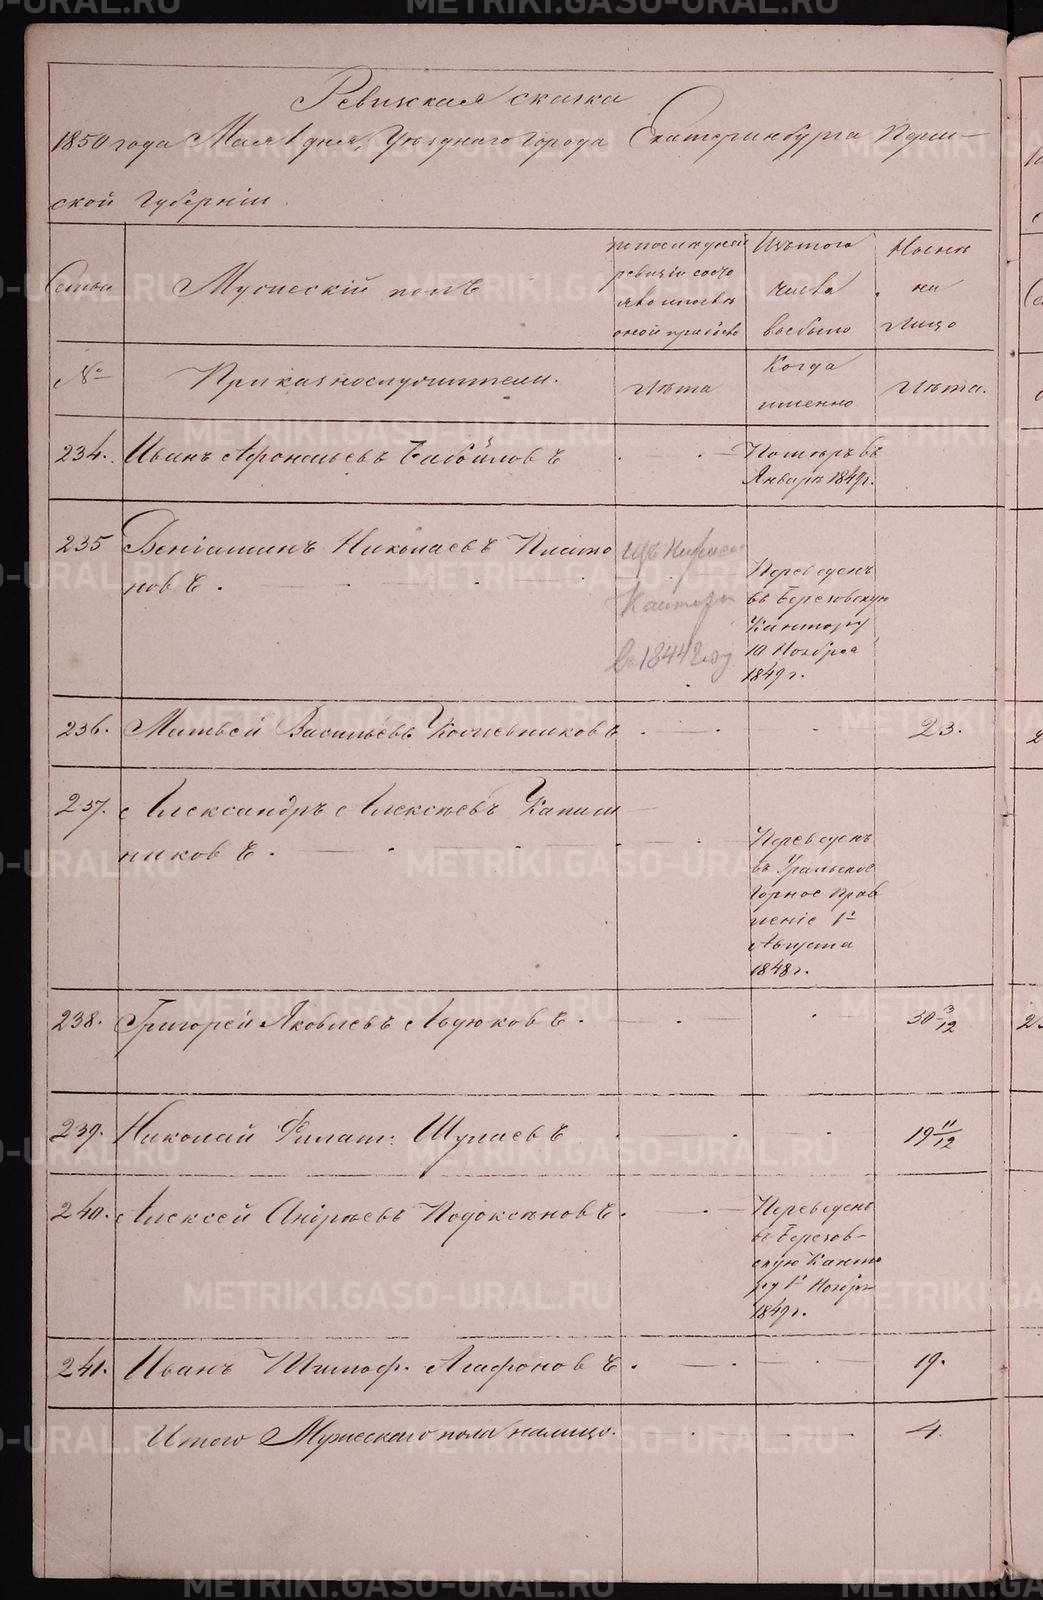 Ревижская сказка
1850 года Мая 1 дня, Уѣзднаго Города Екатеринбурга Перм-
ской Губерніи.
Семьи
Мужескій полъ
по послѣдней
ревизіи состо
яло
Изъ того
числа
выбыло
Нынѣ
на
Лицо
№
Приказнослужители.
Лѣта
Когда
именно
Лѣта.
234. Иванъ Афонасьевъ
Померъ въ
Январѣ 1849 г.
235 Веніаминъ Николаевъ Плато
новъ.
Изъ
Канторы
в 1844 году
Переведенъ
въ Березовскую
Кантору
10 Ноября
1849 г.
236. Матвей Васильевъ Кочевниковъ 23.
237. Александръ Алексѣевъ Капит
никовъ.
Переведенъ
въ Уральское
Горное Прав
леніе 1го
Августа
1848 г.
238. Григорей Яковлевъ Авдюковъ. 30 3/12
239. Николай Филат: Шулаевъ 19 11/12
240. Алексей Андрѣевъ Подоксеновъ.
Переведенъ
въ Березов-
скую Канто
ру 1го Ноября
1849 г.
241. Иванъ Тимоф. Агафоновъ. 19.
Итого Мужескаго пола налицо. 4.
METRIKI.GASO-URAL.RU